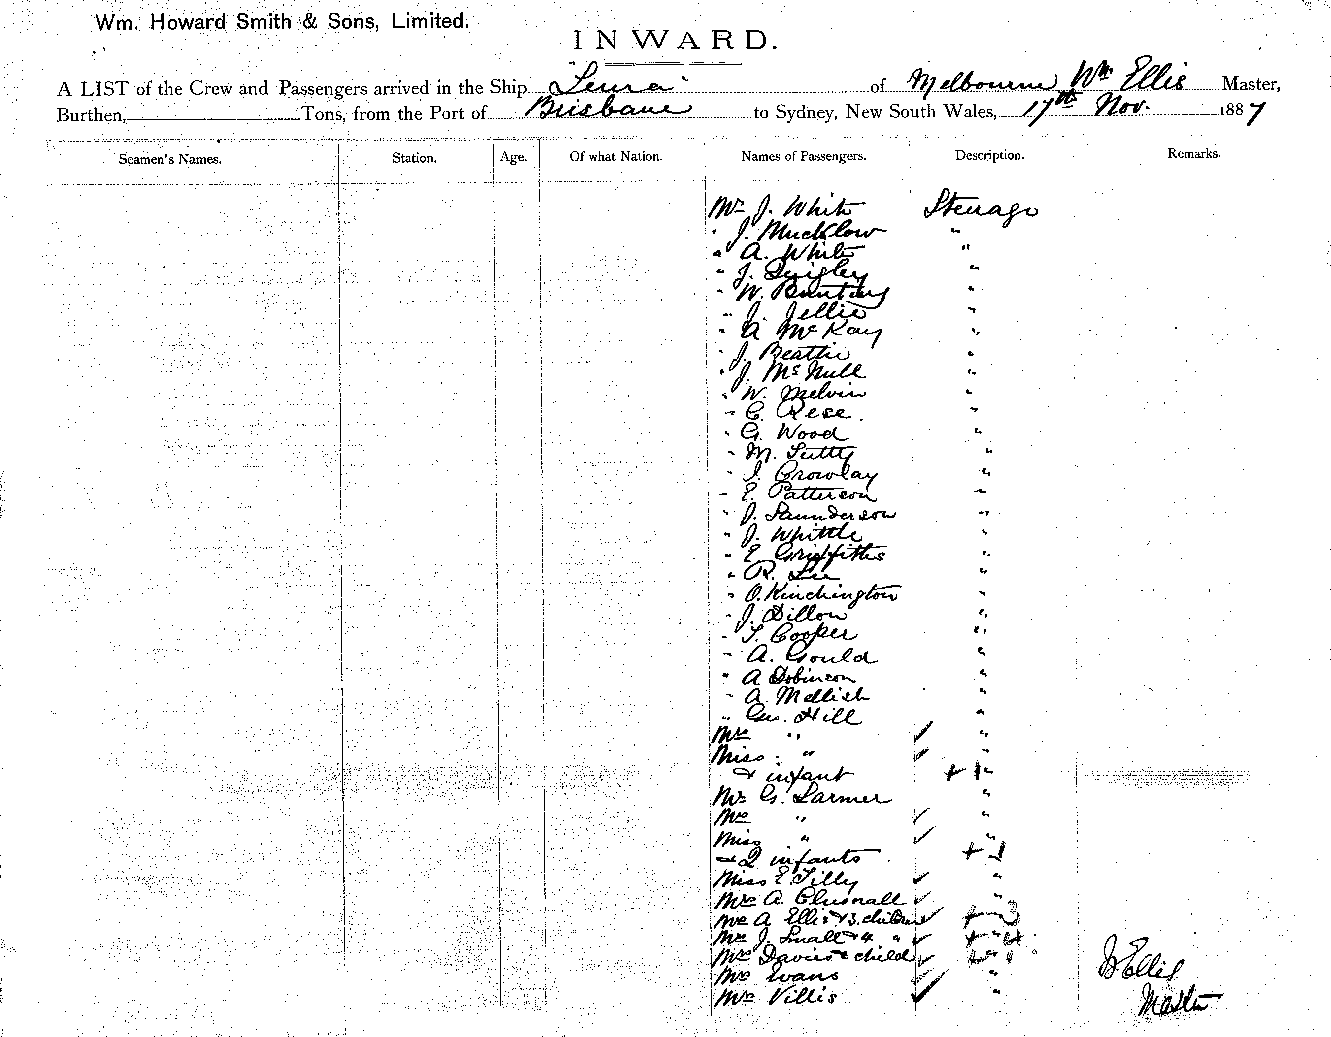 Wm. Howard Smith & Sons, Limited.
INWARD.
A LIST of the Crew and Passengers arrived in the Ship "Leura" of Melbourne Wm Ellis Master,
Burthen, Tons, from the Port of Brisbane to Sydney, New South Wales, 17th Nov. 1887
Seamen's Names. Station. Age. Of what Nation. Names of Passengers. Description. Remarks.
Mr J. White Steerage
" J. Mucklow "
" A. White "
" J. Quigley "
" W. Bunting "
" J. Jellie "
" A McKay "
" J. Beattie "
" J. McNull "
" W. Melvin "
" C. Rese. "
" G. Wood "
" M. Tutty "
" J. Crowley "
" E. Patterson "
" J. Saunderson "
" J. Whittle "
" E Griffiths "
" R. Lee "
" O. Kinchington "
" J. Dillon "
" T. Cooper "
" A. Gould "
" A Dobinson "
" A. Mellish "
" Geo. Hill "
Mrs " "
Miss " "
& infant + 1
Mr G. Larmer "
Mrs " "
Miss " "
& 2 infants +
Miss E. Tilly "
Mrs A.
Mrs A Ellis & 3 children + 3
Mrs J. Small & 4 " + 4
Mrs Davies & child
Mrs Evans "
Mrs Villis "
W Ellis
Master